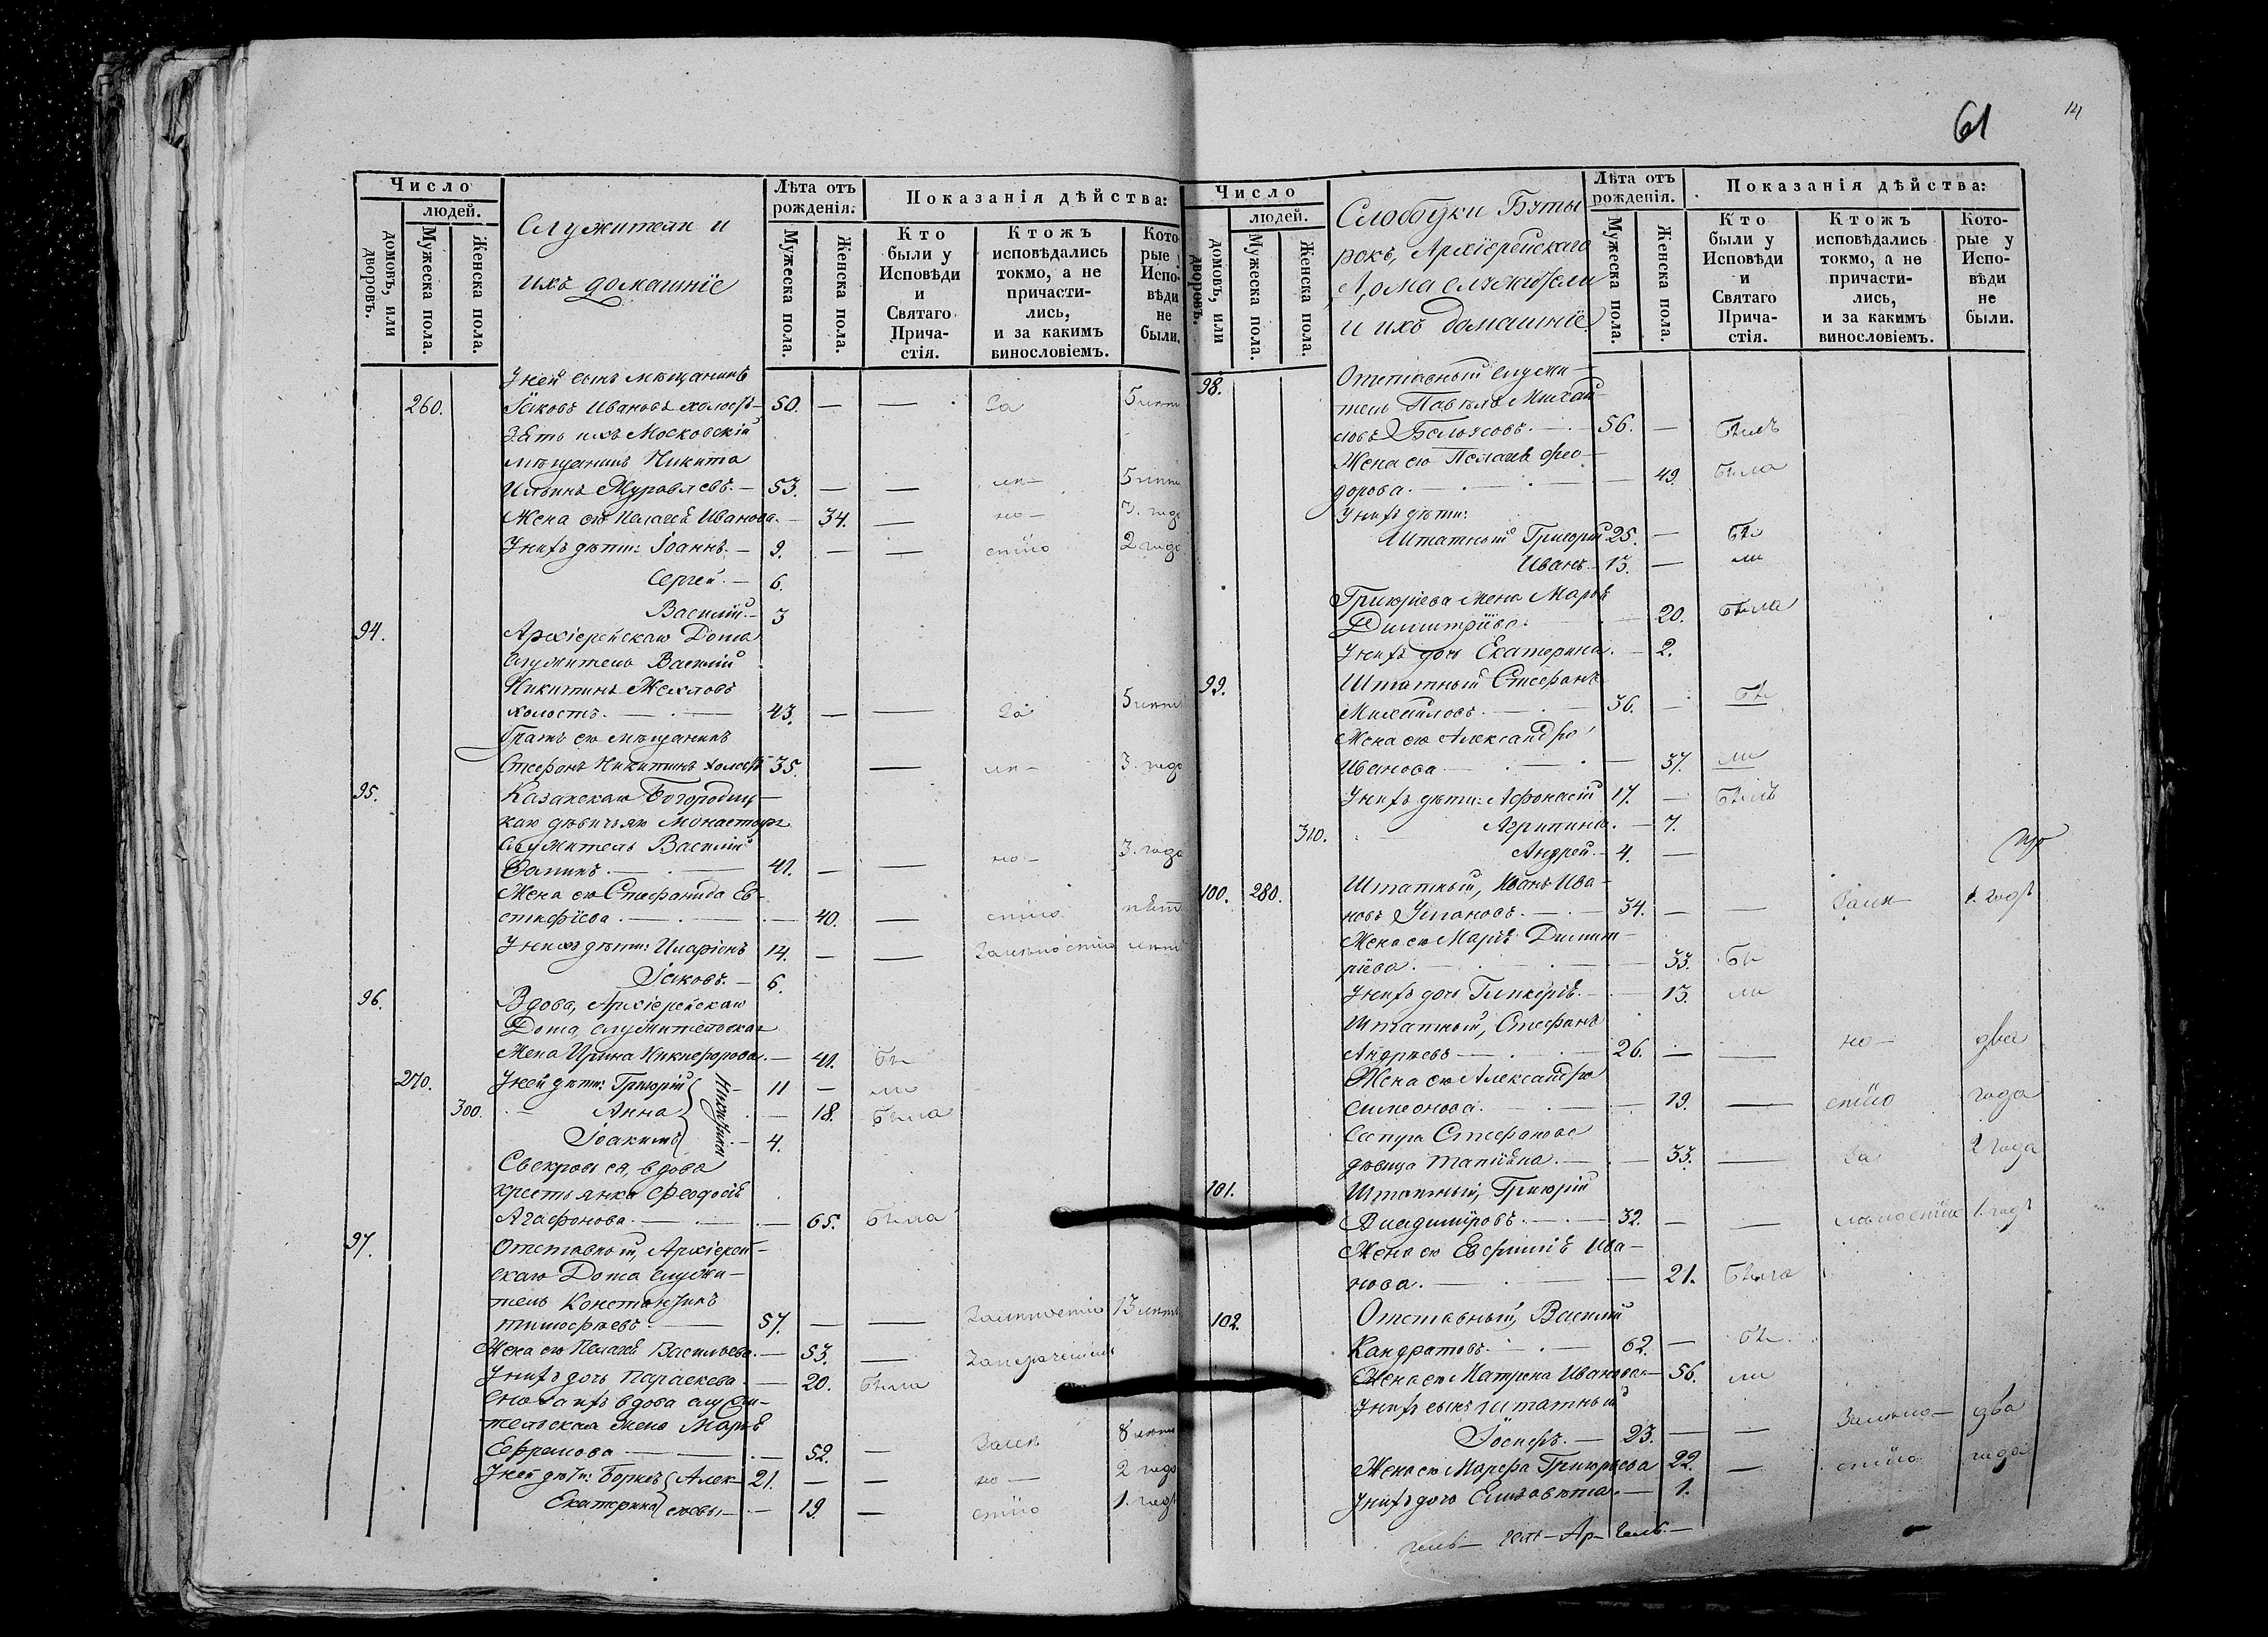 61
14
Число
людей.
домовъ, или дворовъ.
Мужеска пола.
Женска пола.
Служители и
ихъ домашніе
Лѣта отъ рожденія.
Мужеска пола.
Женска пола.
Показанія дѣйства:
Кто были у Исповѣди и Святаго Причастія.
Ктожъ исповѣдались токмо, а не причастились, и за какимъ винословіемъ.
Которые у Исповѣди не были.
У ней сынъ мѣщанинъ
260. Іаковъ Ивановъ холостъ — 50. — — За 5 лѣтъ
Зять ихъ Московскій
мѣщанинъ Никита
Ильинъ Журавлевъ. — 53. — — лѣ— 5 лѣтъ
Жена его Пелагея Иванова. — 34. — но— 3. года
У нихъ дѣти: Іоаннъ. — 9. — — стію 2 года
Сергей. — 6.
Василій. — 3
94. Архіерейскаго Дома
служитель Василій
Никитинъ
холостъ. — 43. — — За 5 лѣтъ
Братъ его мѣщанинъ
Стефанъ Никитинъ холостъ 35. — лѣ— 3. года
95. Казанскаго Богородиц—
каго дѣвичьяго Монастыря
служитель Василій
41. — — но— 3. года
Жена его Стефанида Ев—
стафіева. — 40. — стію
У нихъ дѣти: Иларіонъ 14. — — За лѣностію лѣтъ
Іаковъ. — 6.
96. Вдова, Архіерейскаго
Дома служительская
Жена Ирина Никифорова. — 41. бы
270. У ней дѣти: Григорій 11 — ли
300. Анна — 18. была
Іоакимъ — 4.
Свекровь ея, вдова
крестьянка Феодосія
Агафонова. — 65. была
97. Отставный, Архіерей—
скаго Дома служи—
тель Константинъ
Тимофеевъ — 57. — — За лѣностію 13 лѣтъ
Жена его Пелагея Васильева. — 53. —
У нихъ дочь Параскева. — 20. была
вдова служи—
тельская жена Марія
Ефремова — 52. — За лѣ 8 лѣтъ
У ней дѣти: Борисъ Алек— 21. — — но— 2 года
Екатерина сѣевы — 19. — стію 1. годъ
Число
людей.
домовъ, или дворовъ.
Мужеска пола.
Женска пола.
Слободки Буты
рокъ, Архіерейскаго
Дома служители
и ихъ домашніе
Лѣта отъ рожденія.
Мужеска пола.
Женска пола.
Показанія дѣйства:
Кто были у Исповѣди и Святаго Причастія.
Ктожъ исповѣдались токмо, а не причастились, и за какимъ винословіемъ.
Которые у Исповѣди не были.
98. Отставный служи—
тель Павелъ Михай—
ловъ Белоусовъ. — 56. — былъ
Жена его Пелагея Фео—
дорова. — 49. была
У нихъ дѣти:
Штатный Григорій 25. — бы
Иванъ. — 13. — ли
Григорiева жена Марѳа
Димитріева. — 20. была
У нихъ дочь Екатерина. — 2.
99. Штатный Стефанъ
Михайловъ. — 36. — бы
Жена его Александра
Иванова — 37. ли
У нихъ дѣти: Афонасій 17. — былъ
310. Агрипина. — 7.
Андрей. — 4. —
100. 280. Штатный, Иванъ Ива—
новъ Улановъ. — 34. — — За лѣ— 1. годъ
Жена его Марія Димит—
ріева. — 33. бы
У нихъ дочь Гликерія. — 13. ли
Штатный, Стефанъ
Андреевъ — 26. — — но— два
Жена его Александра
Симеонова. — 19. — стію года
Сестра Стефанова
дѣвица Татіяна. — 33. — За 2 года
101. Штатный, Григорій
Владиміровъ. — 32. — — лѣностію 1. годъ
Жена его Евфимія Ива—
нова. — 21. была
102. Отставный, Василій
Кандратовъ. — 62. — бы
Жена его Матрена Иванова — 56. ли
У нихъ сынъ штатный
Іосифъ. — 23. — — За лѣно— два
Жена его Марѳа Григорьева 22. — стію года
У нихъ дочь Елизавета. — 1.